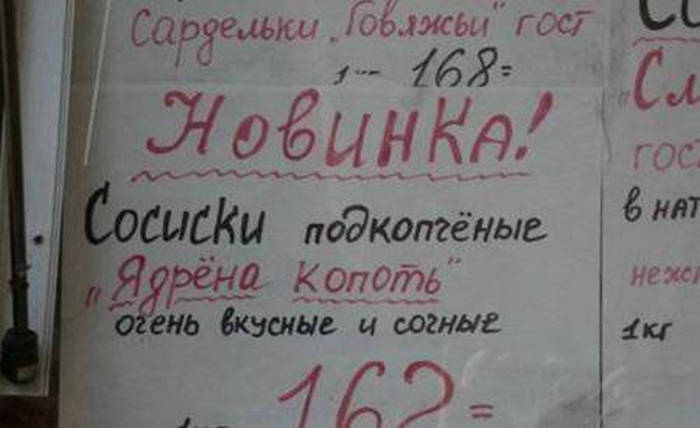 Сардельки „Говяжьи" гост
168=
Новинка!
Сосиски подкопчёные
„Ядрёна копоть"
очень вкусные и сочные
162=
гос
в нат
1кг